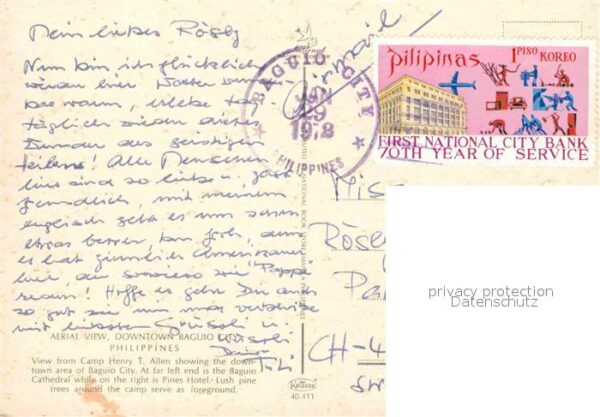 Mein liebes Rösly
Nun bin ich glücklich
wieder hier
das warm, erlebe tag
täglich wieder dieses
Wunder des geistigen
heilens! Alle Menschen
hier sind so liebe u. gast
freundlich, mit meinem
englisch geht es nun schon
etwas besser, bin froh, denn
es hat ziemlich Amerikaner
hier, die sowieso wie "Pappe"
reden! Hoffe es gehe Dir auch
so gut wie mir
mit liebsten Grüssli u.
Airmail
BAGUIO CITY
JAN
29
1978
PHILIPPINES
pilipinas 1 PISO KOREO
FIRST NATIONAL CITY BANK
70TH YEAR OF SERVICE
Miss
Rösly
CH-4
privacy protection
Datenschutz
AERIAL VIEW, DOWNTOWN BAGUIO CITY
PHILIPPINES
View from Camp Henry T. Allen showing the down-
town area of Baguio City. At far left end is the Baguio
Cathedral while on the right is Pines Hotel. Lush pine
trees around the camp serve as foreground.
KRUGER
40.411